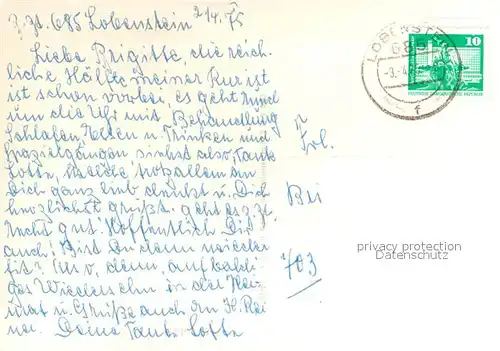 z. Zt. 685 Lobenstein 2.4.75
Liebe Brigitte, die reich-
liche Hälfte meiner Kur ist
ist schon vorbei, es geht rund
um die Uhr mit Behandlung
Schlafen, Essen u. Trinken und
Spaziergängen siehst also, Tante
Lotte, welche trotz allem an
Dich ganz lieb denkt u. Dich
herzlichst grüßt. geht es z. Zt.
recht gut. Hoffentlich Dir
auch! Bist Du denn wieder
fit? Nun, denn, auf baldi-
ges Wiedersehn in der Hei-
mat u. Grüße auch an H. Rai-
ner. Deine Tante Lotte
Frl.
Bri
703
LOBENSTEIN
685
f
10
DEUTSCHE DEMOKRATISCHE REPUBLIK
privacy protection
Datenschutz